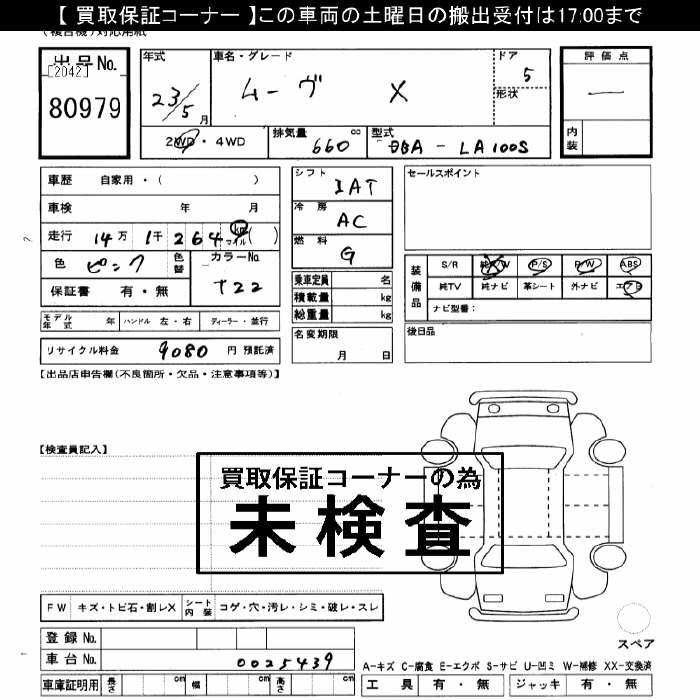 【 買取保証コーナー 】この車両の土曜日の搬出受付は17:00まで
(複合機)対応用紙
出品No.
[2042]
80979
年式
23/5 月
車名・グレード
ムーヴ X
ドア
5
形状
評価点
―
内装
2WD・4WD
排気量 660 cc
型式 DBA - LA100S
車歴 自家用・( )
車検 年 月
走行 14万 1千 264 km マイル ( )
色 ピンク
色替
カラーNo. T22
保証書 有・無
シフト IAT
冷房 AC
燃料 G
乗車定員 名
積載量 kg
総重量 kg
セールスポイント
装備品
S/R 純A/W P/S P/W ABS
純TV 純ナビ 革シート 外ナビ エアB
ナビ型番:
モデル年式 年 ハンドル 左・右 ディーラー・並行
名変期限
月 日
後日品
リサイクル料金 9080 円 預託済
【出品店申告欄(不良箇所・欠品・注意事項等)】
【検査員記入】
買取保証コーナーの為
未検査
FW キズ・トビ石・割レX シート内装 コゲ・穴・汚レ・シミ・破レ・スレ
スペア
登録No.
車台No. 0025439
A-キズ C-腐食 E-エクボ S-サビ U-凹ミ W-補修 XX-交換済
車庫証明用 長さ cm 幅 cm 高さ cm
工具 有・無 ジャッキ 有・無